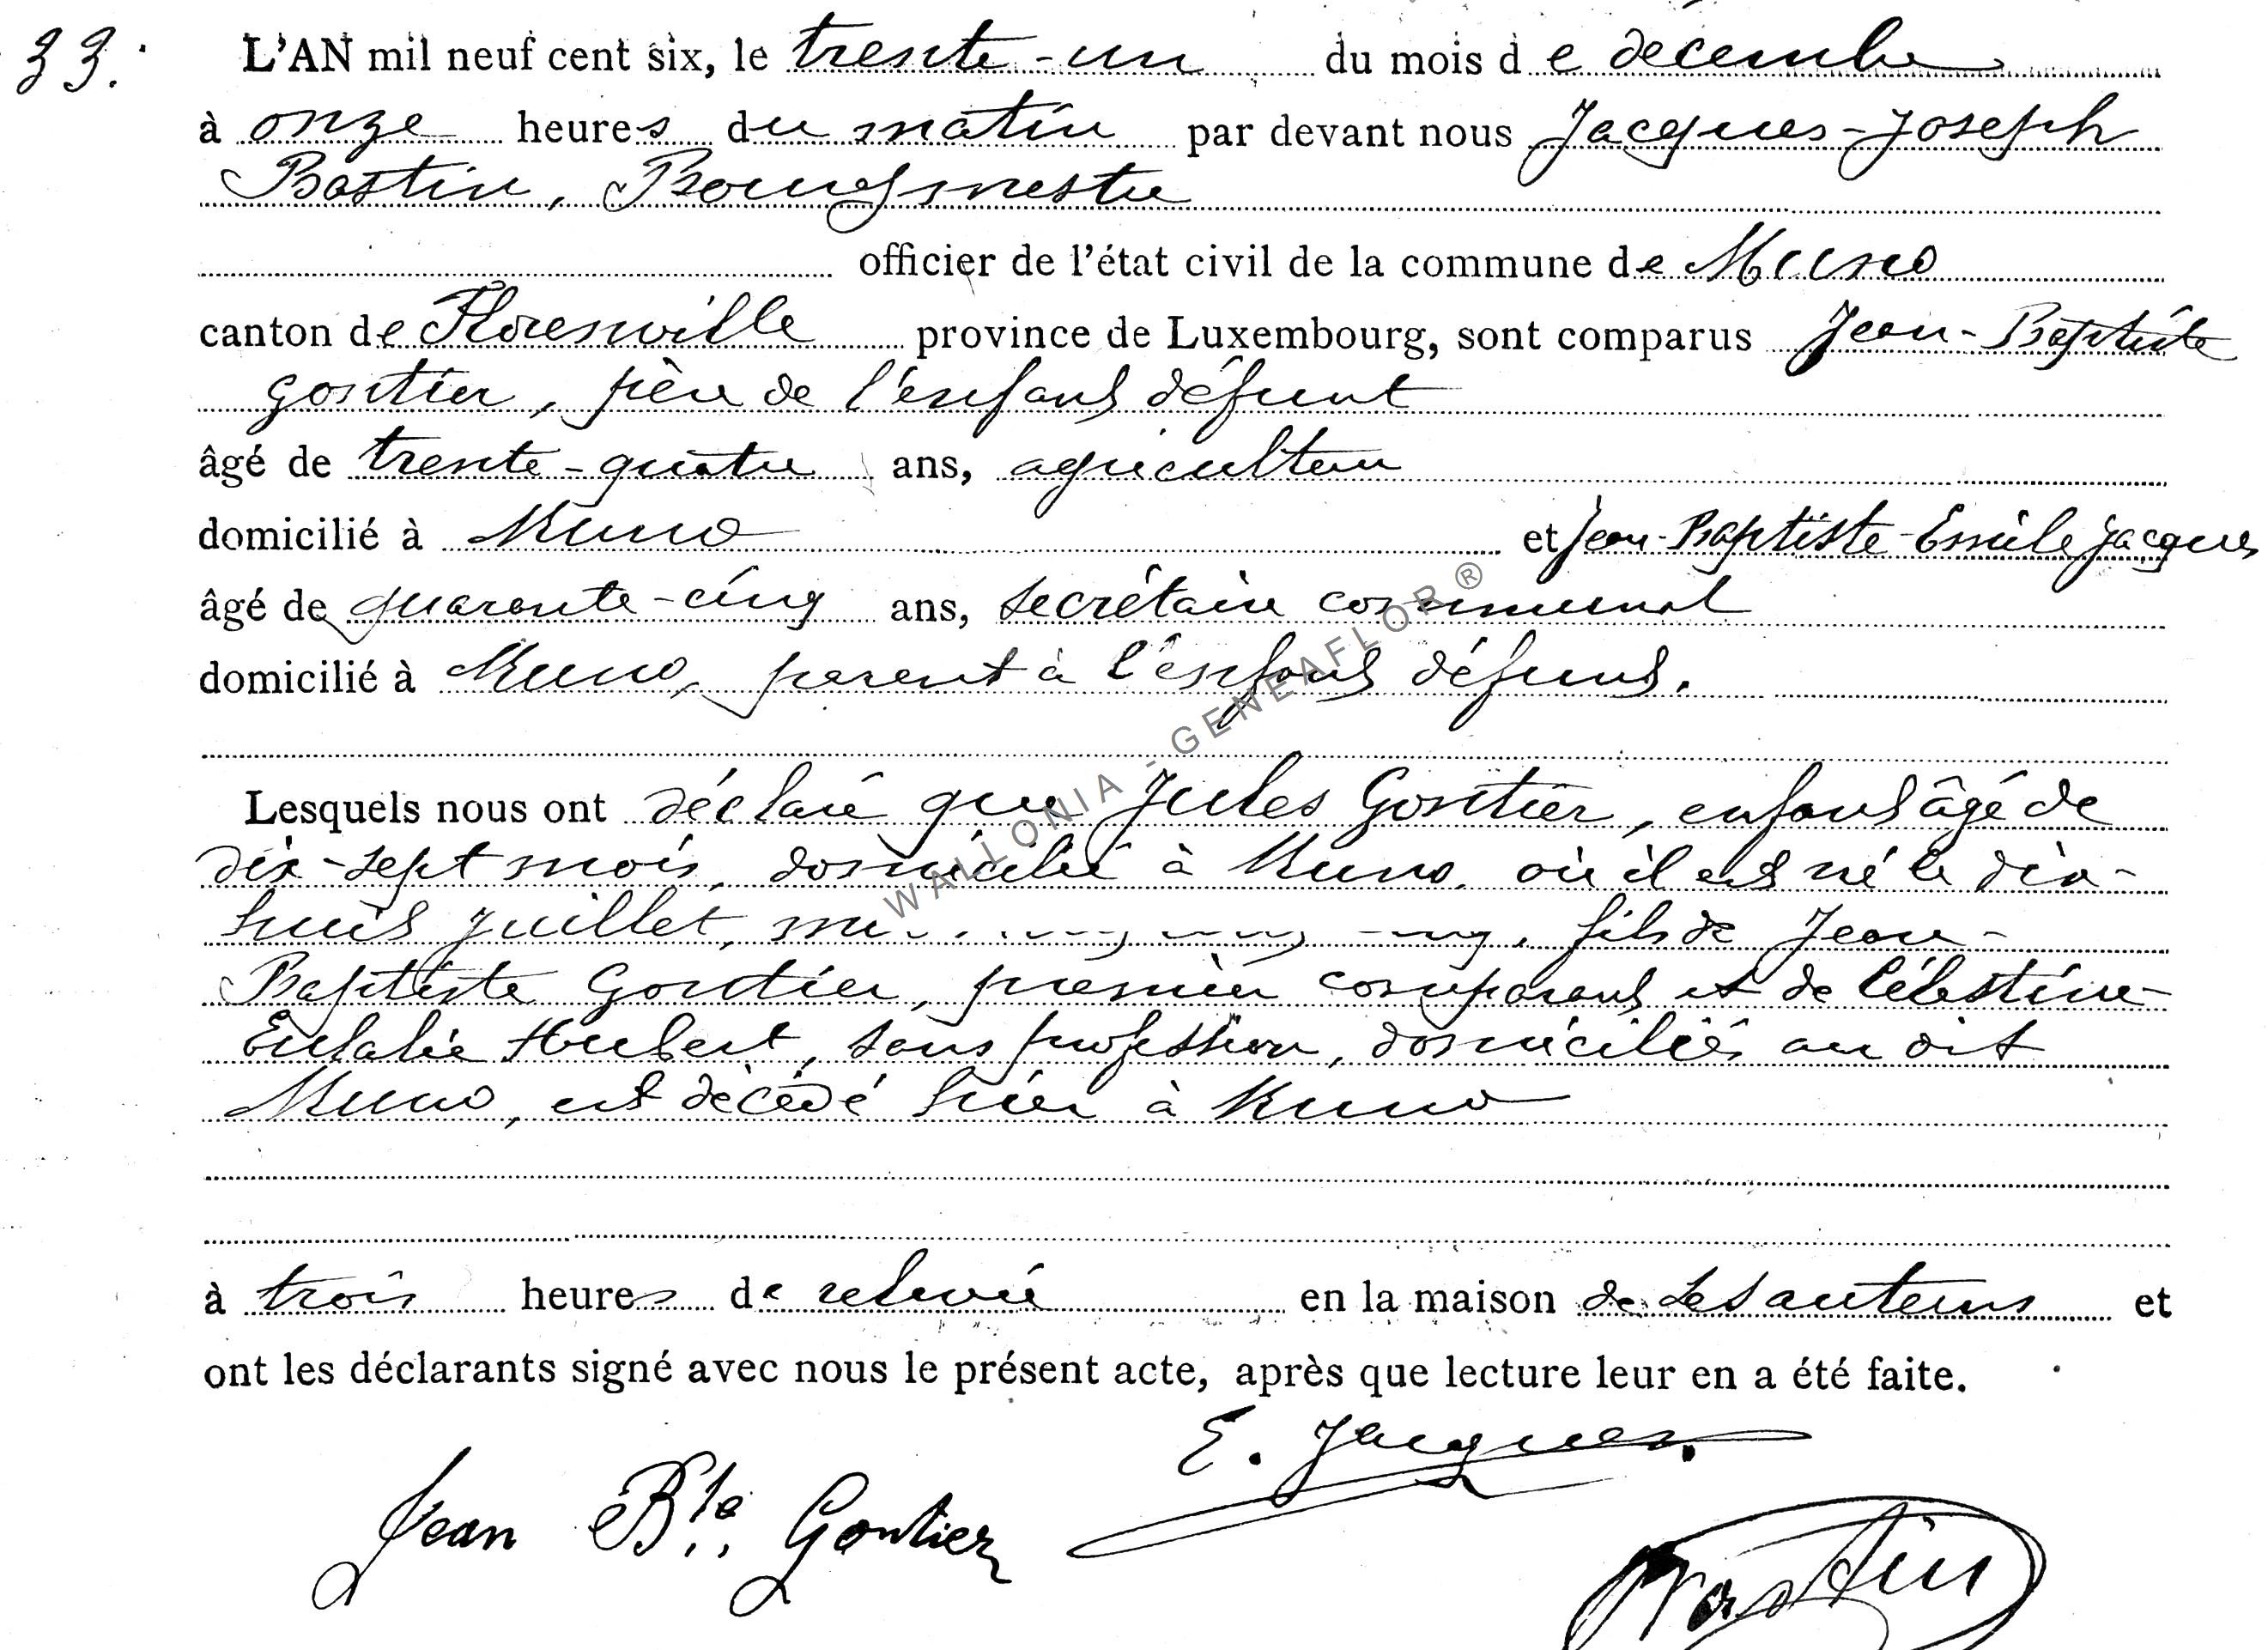 33.
L'AN mil neuf cent six, le trente-un du mois de décembre
à onze heures du matin par devant nous Jacques-Joseph
Bastin, Bourgmestre
officier de l'état civil de la commune de Muno
canton de Florenville province de Luxembourg, sont comparus Jean-Baptiste
Gontier, père de l'enfant défunt
âgé de trente-quatre ans, agriculteur
domicilié à Muno et Jean-Baptiste-Emile Jacques
âgé de quarante-cinq ans, secrétaire communal
domicilié à Muno, parent à l'enfant défunt.
Lesquels nous ont déclaré que Jules Gontier, enfant âgé de
dix-sept mois, domicilié à Muno, où il est né le dix-
huit juillet, fils de Jean-
Baptiste Gontier, premier comparant et de Célestine-
Eulalie Hubert, sans profession, domiciliés au dit
Muno, est décédé hier à Muno
à trois heures de relevée en la maison de ses auteurs et
ont les déclarants signé avec nous le présent acte, après que lecture leur en a été faite.
E. Jacques.
Jean Bte Gontier
Bastin
WALLONIA - GENEAFLOR ®